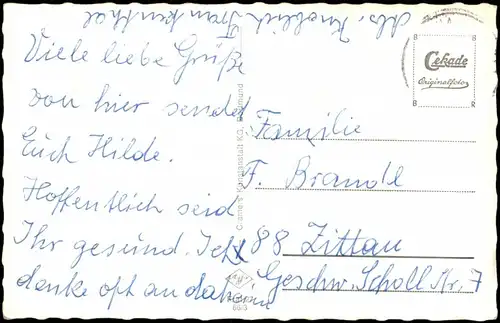 Abs. Knoblich Frankenthal
Viele liebe Grüße
von hier sendet
Euch Hilde.
Hoffentlich seid
Ihr gesund. Ich
denke oft an daheim
Cekade
Originalfoto
Familie
F. Brandl
88 Zittau
Geschw. Scholl Nr. 7